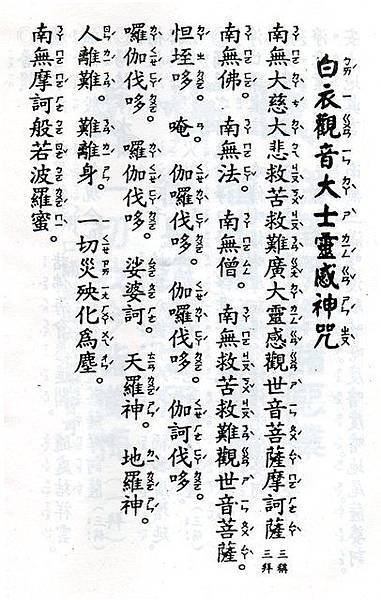 白衣觀音大士靈感神咒
南無大慈大悲救苦救難廣大靈感觀世音菩薩摩訶薩三稱三拜
南無佛。南無法。南無僧。南無救苦救難觀世音菩薩。
怛垤哆。唵。伽囉伐哆。伽囉伐哆。伽訶伐哆。
囉伽伐哆。囉伽伐哆。娑婆訶。天羅神。地羅神。
人離難。難離身。一切災殃化為塵。
南無摩訶般若波羅蜜。